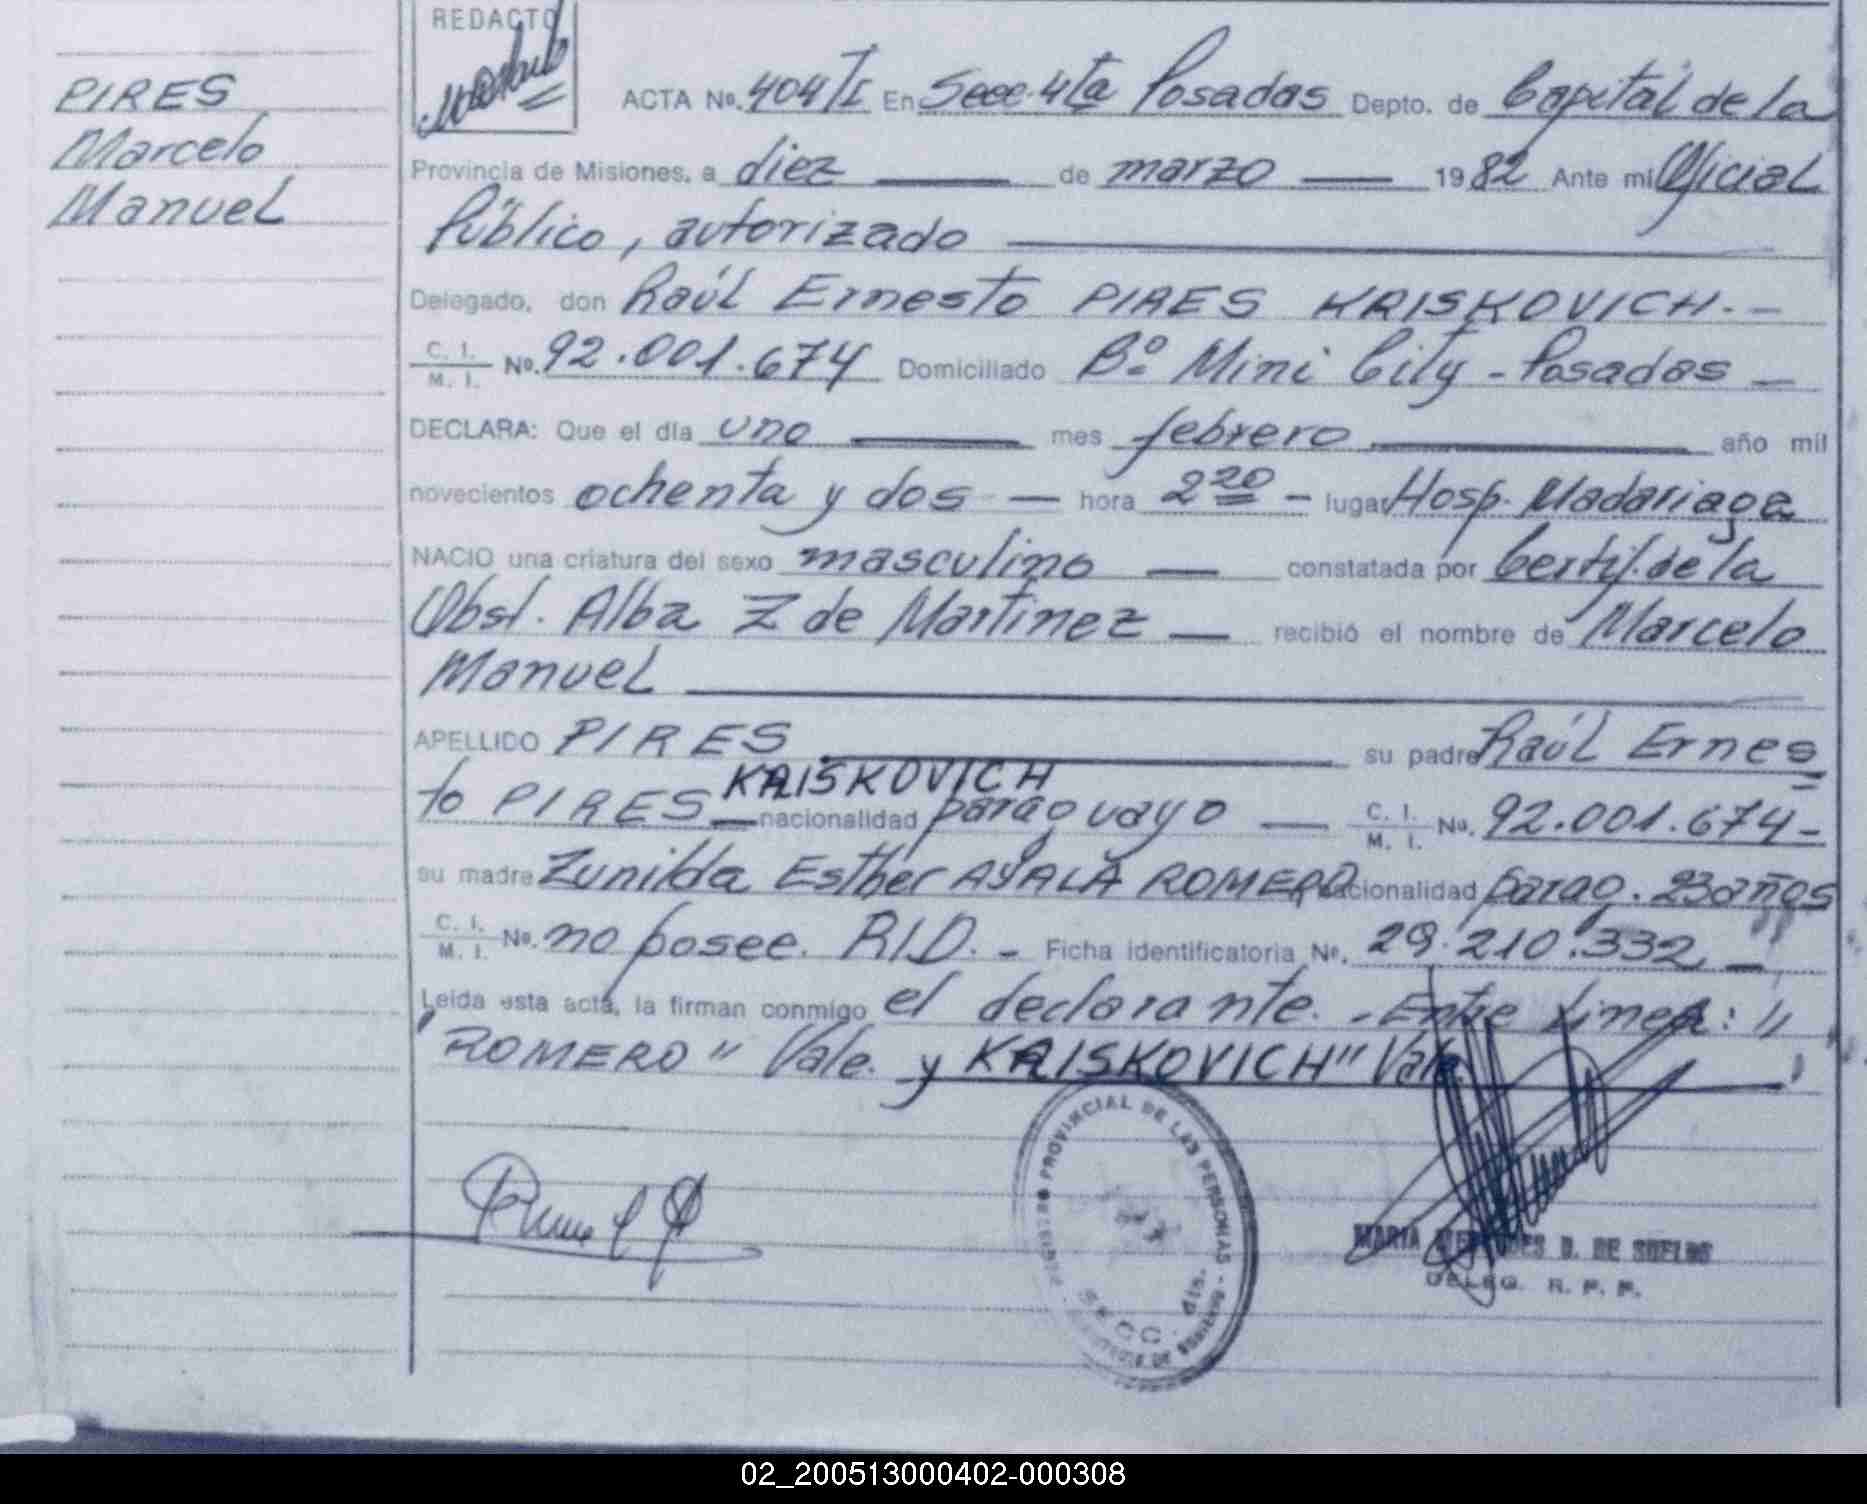 REDACTO
PIRES
Marcelo
Manuel
ACTA No. 404 TI En Secc. 4ta Posadas Depto. de Capital de la
Provincia de Misiones, a diez de marzo 1982 Ante mi Oficial
Público, autorizado
Delegado, don Raúl Ernesto PIRES KRISKOVICH. -
C. I. / M. I. No. 92.001.674 Domiciliado Bº Mini City - Posadas -
DECLARA: Que el día uno mes febrero año mil
novecientos ochenta y dos - hora 2 20 - lugar Hosp. Madariaga
NACIO una criatura del sexo masculino - constatada por Certif. de la
Obst. Alba Z de Martinez - recibió el nombre de Marcelo
Manuel
APELLIDO PIRES su padre Raúl Ernes
to PIRES KRISKOVICH nacionalidad paraguayo - C. I. / M. I. No. 92.001.674 -
su madre Zunilda Esther AYALA ROMERO nacionalidad parag. 23 años
C. I. / M. I. No. no posee. R.I.D. - Ficha identificatoria No. 29.210.332 -
Leída esta acta, la firman conmigo el declarante. - Entre Linea: "
ROMERO" Vale. y KRISKOVICH" Vale
REGISTRO PROVINCIAL DE LAS PERSONAS
SECC. 4ta.
MARIA D. DE
DELEG. R. P. P.
02_200513000402-000308